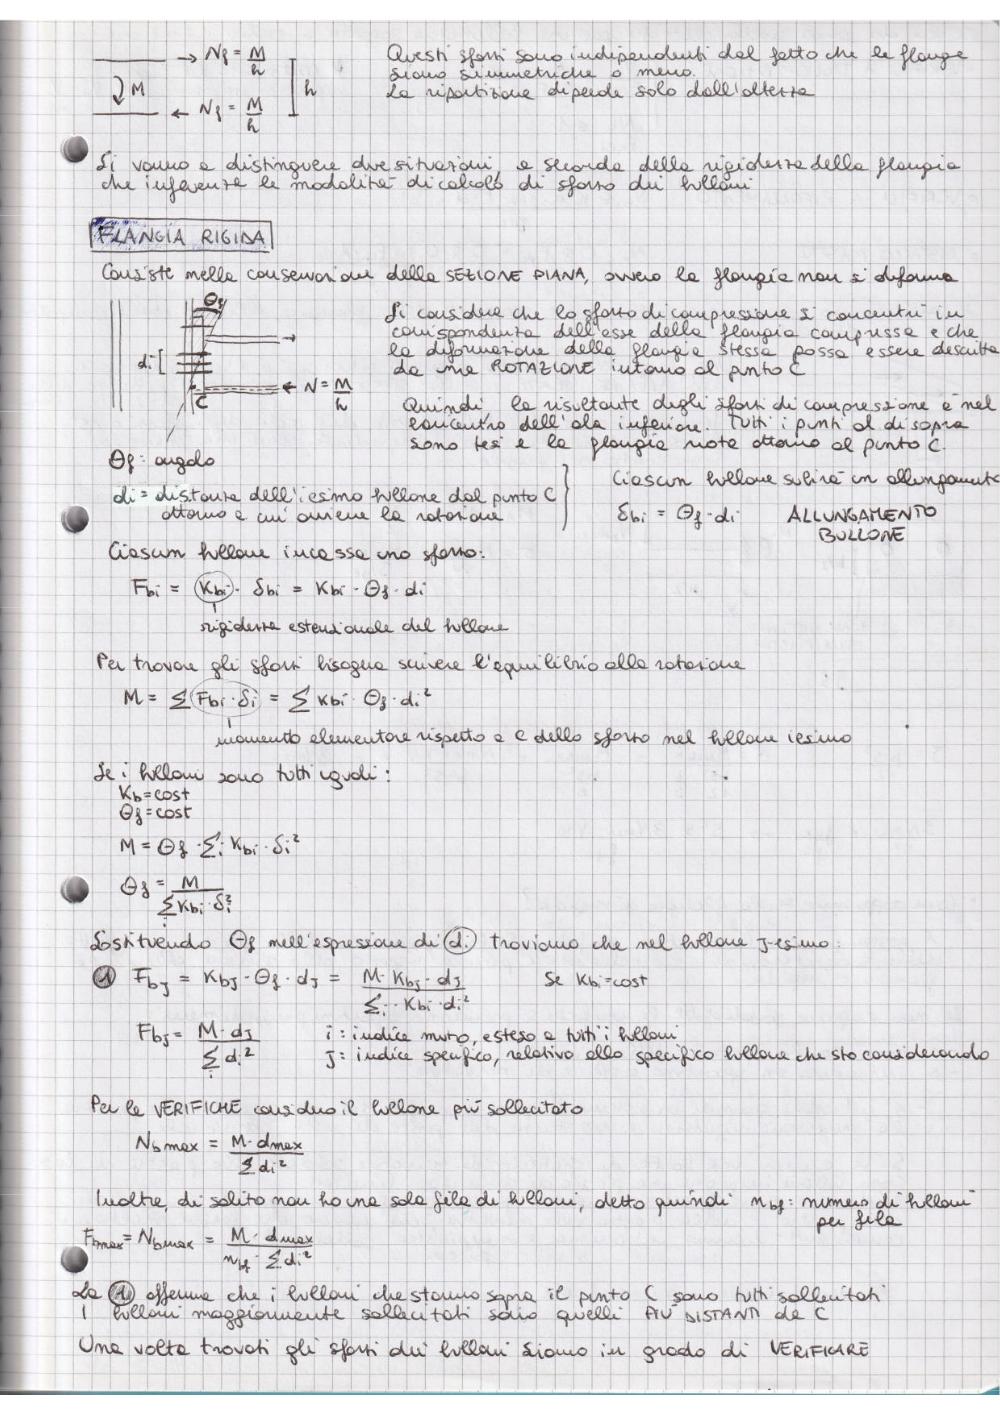 → Nf = M/h
Questi sforzi sono indipendenti dal fatto che le flange
siano simmetriche o meno.
M
h
La ripartizione dipende solo dall'altezza
← Nf = M/h
Si vanno a distinguere due situazioni, a seconda della rigidezza della flangia
che influenza le modalità di calcolo di sforzo dei bulloni
FLANGIA RIGIDA
Consiste nella conservazione della SEZIONE PIANA, ovvero la flangia non si deforma
Θf
di
C
← N = M/h
Si considera che lo sforzo di compressione si concentri in
corrispondenza dell'asse della flangia compressa e che
la deformazione della flangia stessa possa essere descritta
da una ROTAZIONE intorno al punto C
Quindi, la risultante degli sforzi di compressione è nel
baricentro dell'ala inferiore. Tutti i punti al di sopra
sono tesi e la flangia ruota attorno al punto C.
Θf: angolo
di = distanza dell'iesimo bullone dal punto C
attorno a cui avviene la rotazione
Ciascun bullone subirà un allungamento
δbi = Θf · di ALLUNGAMENTO
BULLONE
Ciascun bullone incassa uno sforzo:
Fbi = Kbi · δbi = Kbi · Θf · di
rigidezza estensionale del bullone
Per trovare gli sforzi bisogna scrivere l'equilibrio alla rotazione
M = Σ Fbi · δi = Σ Kbi · Θf · di²
momento elementare rispetto a C dello sforzo nel bullone iesimo
Se i bulloni sono tutti uguali:
Kb = cost
Θf = cost
M = Θf · Σi Kbi · δi²
Θf = M / Σi Kbi · δi²
Sostituendo Θf nell'espressione di di troviamo che nel bullone J-esimo:
① FbJ = KbJ · Θf · dJ = M · KbJ · dJ / Σi Kbi · di² Se Kbi = cost
FbJ = M · dJ / Σi di²
i: indice muto, esteso a tutti i bulloni
J: indice specifico, relativo allo specifico bullone che sto considerando
Per le VERIFICHE considero il bullone più sollecitato
Nbmax = M · dmax / Σ di²
Inoltre, di solito non ho una sola fila di bulloni, detto quindi nbf: numero di bulloni
per fila
Fbmax = Nbmax = M · dmax / nbf · Σ di²
La ① afferma che i bulloni che stanno sopra il punto C sono tutti sollecitati
I bulloni maggiormente sollecitati sono quelli PIÙ DISTANTI da C
Una volta trovati gli sforzi dei bulloni siamo in grado di VERIFICARE